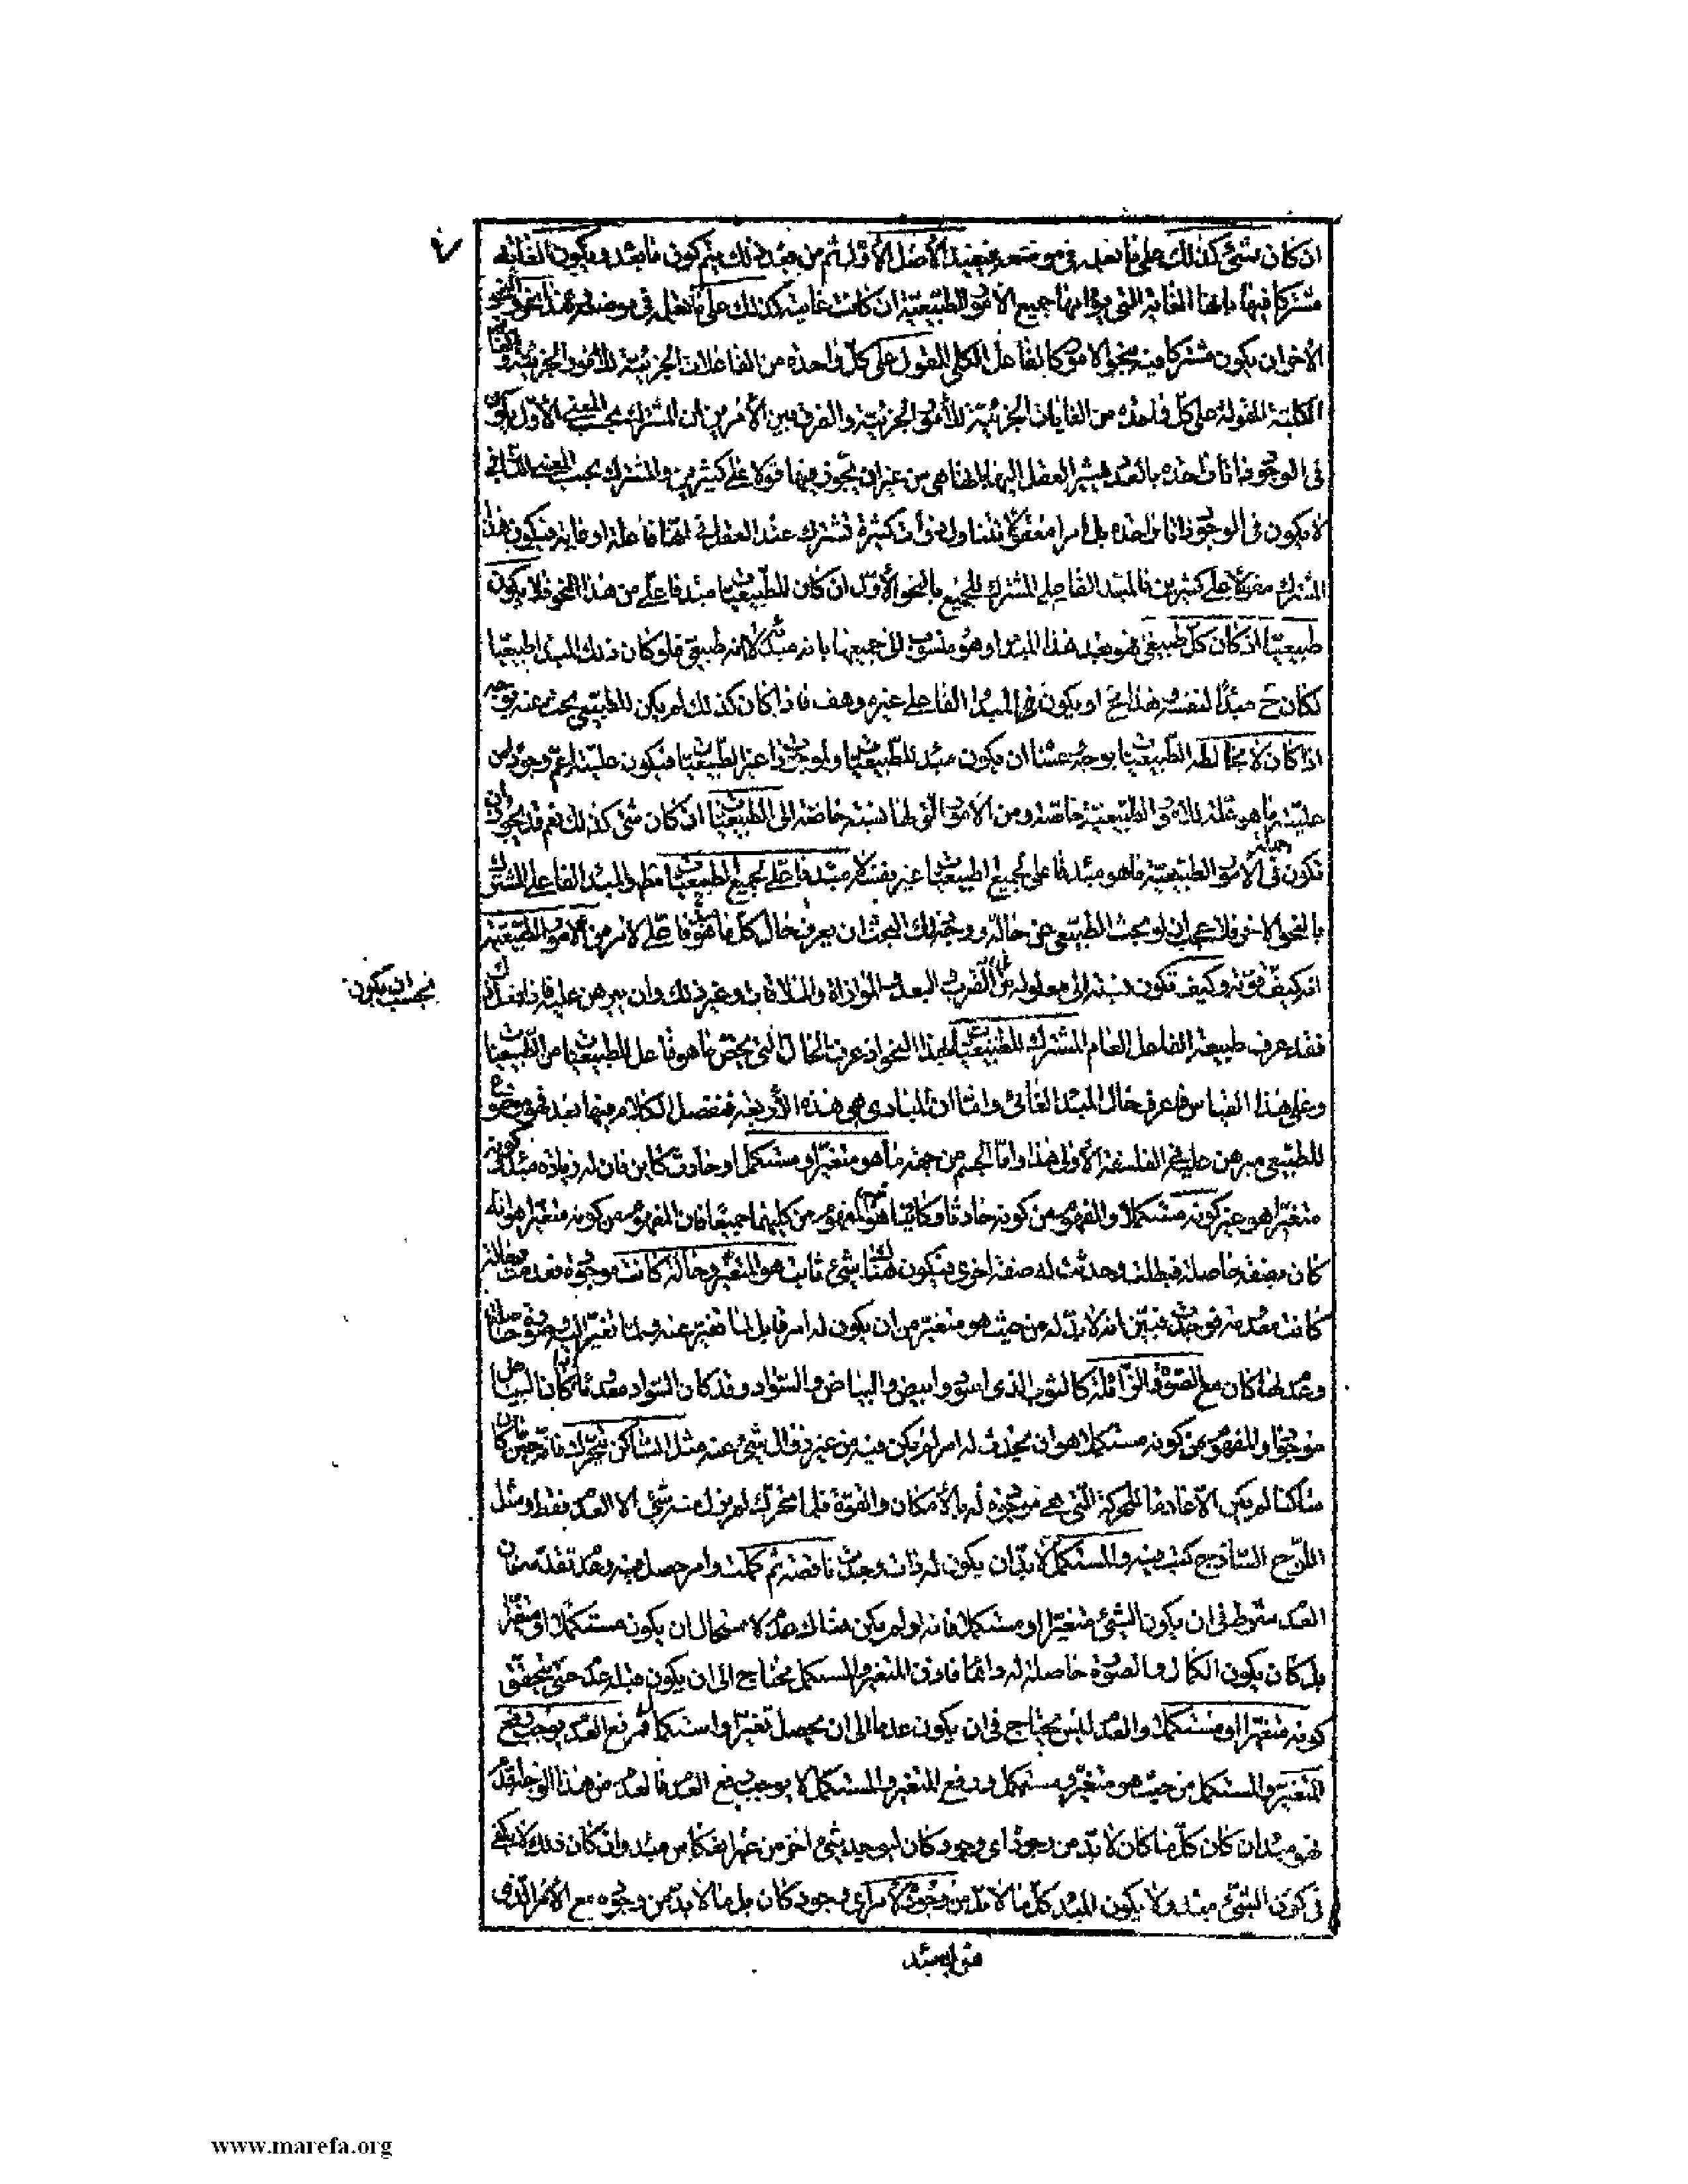 ٧
ان كان شئ كذلك على ما نعلمه فى موضعه فيفيد الأصل الأول ثم من بعد ذلك يتم كون ما بعده ويكون الغاية
مشتركا فيها بانها الغاية التى يؤمها جميع الامور الطبيعية ان كانت غاية كذلك على ما نعلمه فى موضعه هذا نحو والنحو
الآخر ان يكون مشتركا فيه بنحو الامور كالفاعل الكلى المقول على كل واحدة من الفاعلات الجزئية للامور الجزئية والغاية
الكلية المقولة على كل واحدة من الغايات الجزئية للأمور الجزئية والفرق بين الأمرين ان المشترك بحسب المعنى الأول يكون
فى الوجود ذاتا واحدة بالعدد يشير العقل اليها بانها هى من غير ان يجوز فيها قولا على كثيرين والمشترك بحسب المعنى الثانى
لا يكون فى الوجود ذاتا واحدة بل امرا معقولا يتناول ذوات كثيرة تشترك عند العقل فى انها فاعلة او غاية فيكون هذا
المشترك مقولا على كثيرين فالمبدء الفاعلى المشترك للجميع بالنحو الأول ان كان للطبيعيات مبدء فاعلى من هذا النحو فلا يكون
طبيعيا اذ كان كل طبيعى فهو بعد هذا المبدء وهو منسوب الى جميعها بانه مبدء لانه طبيعى فلو كان ذلك المبدء طبيعيا
لكان ح مبدءا لنفسه هذا مح او يكون المبدء الفاعلى غيره وهف فاذا كان كذلك لم يكن للطبيعى بحث عنه بوجه
اذا كان لا يخالط الطبيعيات بوجه عسا ان يكون مبدء للطبيعيات ولوجودات غير الطبيعيات فيكون عليته اعم وجودا من
علية ما هو علة للامور الطبيعية خاصة ومن الامور التى لها نسبة خاصة الى الطبيعيات ان كان شئ كذلك نعم قد يجوز ان
تكون فى جملة الامور الطبيعية ما هو مبدء فاعلى لجميع الطبيعيات غير نفسه لا مبدء فاعلى لجميع الطبيعيات مطلقا والمبدء الفاعلى المشترك
بالنحو الاخر فلا عجب ان لو بحث الطبيعى عن حاله ووجه ذلك البحث ان يعرف حال كل ما هو فاعلى لامر من الامور الطبيعية
انه كيف قوته وكيف تكون نسبته الى معلوله من القرب والبعد والموازاة والملاقات وغير ذلك وان يبرهن عليه فاذا فعل ذلك
يجب ان يكون
فقد عرف طبيعة الفاعل العام المشترك للطبيعيات بهذا النحو اذ عرف الحال التى يخص ما هو فاعل للطبيعيات من الطبيعيات
وعلى هذا القياس فاعرف حال المبدء الغائى واما ان المبادى هى هذه الأربعة فنفصل الكلام فيها بعد فهو موضوع
للطبيعى مبرهن عليه فى الفلسفة الأولى هذا واما الجسم من جهة ما هو متغير او مستكمل او حادث كاين فان له زيادة مبدء وكونه
متغيرا هو غير كونه مستكملا والمفهوم من كونه حادثا وكائنا هو غير المفهوم من كليهما جميعا فان المفهوم من كونه متغيرا هو انه
كان بصفة حاصلة فبطلت وحدثت له صفة اخرى فيكون هناك شئ ثابت هو المتغير وحالة كانت موجودة فعدمت وحالة
كانت معدومة فوجدت فبين انه لا بد له من حيث هو متغير من ان يكون له امر قابل لما تغير عنه ولما تغير اليه وصورة حاصلة
وعدم لها كان مع الصورة الزائلة كالثوب الذى اسود وابيض والبياض والسواد وقد كان السواد معدوما اذا كان البياض
موجودا والمفهوم من كونه مستكملا هو ان يحدث له امر لم يكن فيه من غير زوال شئ عنه مثل الساكن يتحرك فانه حين كان
ساكنا لم يكن الا عادما للحركة التى هى موجودة له بالامكان والقوة فلما تحرك لم يزل منه شئ الا العدم فقط ومثل
اللوح الساذج كتب فيه والمستكمل لا بد ان يكون له ذات وجدت ناقصة ثم كملت وامر حصل فيه وعدم تقدمه فان
العدم شرط فى ان يكون الشئ متغيرا او مستكملا فانه لو لم يكن هناك عدم لاستحال ان يكون مستكملا او متغيرا
بل كان يكون الكمال والصورة حاصلة له دائما فاذن المتغير والمستكمل محتاج الى ان يكون قبله عدم حتى يتحقق
كونه متغيرا او مستكملا والعدم ليس يحتاج فى ان يكون عدما الى ان يحصل تغيرا واستكمالا فرفع العدم يوجب رفع
المتغير والمستكمل من حيث هو متغير ومستكمل ورفع المتغير والمستكمل لا يوجب رفع العدم فالعدم من هذا الوجه اقدم
فهو مبدء ان كان كل ما كان لا بد من وجود اى وجود كان ليوجد شئ اخر من غير انعكاس مبدء وان كان ذلك لا يكفى
فى كون الشئ مبدء ولا يكون المبدء كل ما لا بد من وجوده لأمر اى وجود كان بل ما لا بد من وجوده مع الأمر الذى
هو له مبدء
www.marefa.org